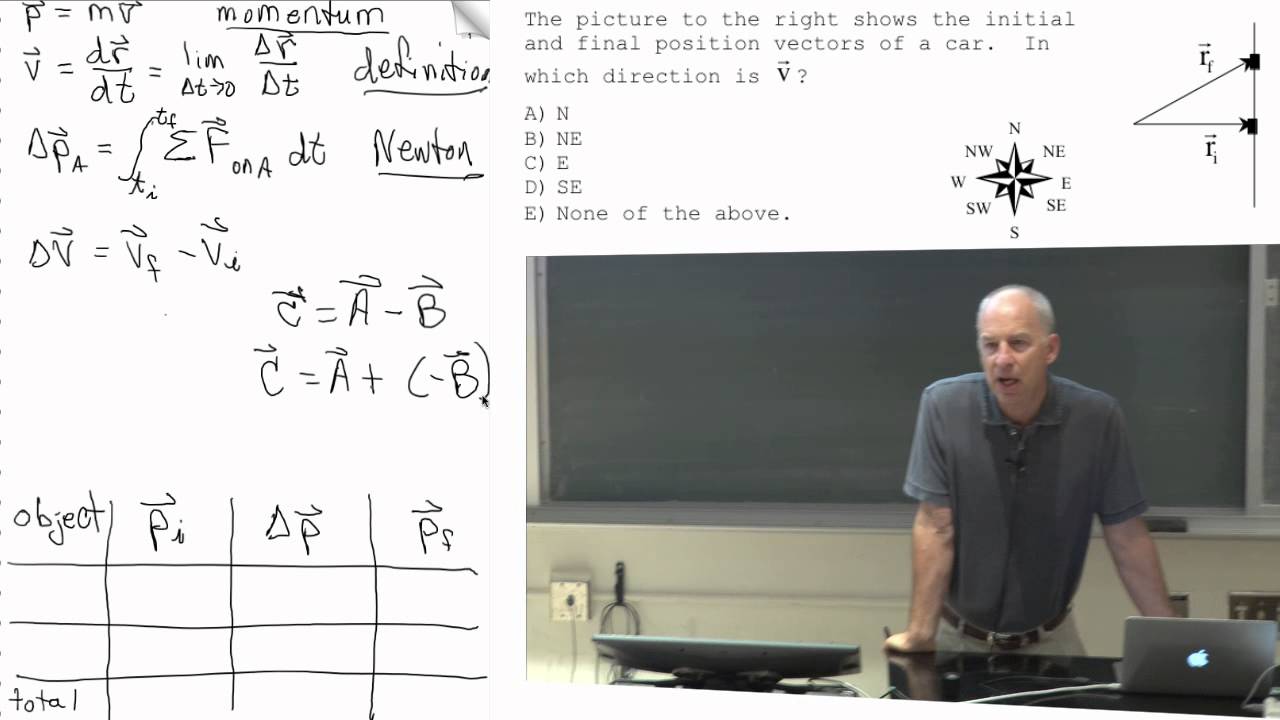 p⃗ = mv⃗ momentum
v⃗ = dr⃗/dt = lim Δt→0 Δr⃗/Δt definition
Δp⃗_A = ∫_{t_i}^{t_f} ΣF⃗_{on A} dt Newton
Δv⃗ = v⃗_f − v⃗_i
C⃗ = A⃗ − B⃗
C⃗ = A⃗ + (−B⃗)
object p⃗_i Δp⃗ p⃗_f
total
The picture to the right shows the initial
and final position vectors of a car. In
which direction is v⃗?
A) N
B) NE
C) E
D) SE
E) None of the above.
N
NW NE
W E
SW SE
S
r⃗_f
r⃗_i